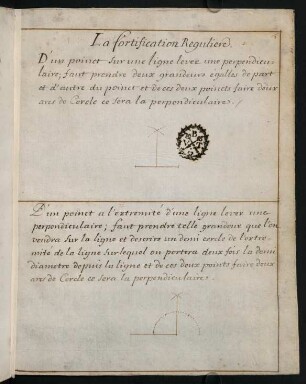 La fortification Reguliere.
D'un poinct sur une ligne lever une perpendicu-
laire; faut prendre deux grandeurs egalles de part
et d'autre du poinct et de ces deux poincts faire deux
arcs de Cercle ce sera la perpendiculaire.
D'un poinct a l'extremité d'une ligne lever une
perpendiculaire; faut prendre telle grandeur que l'on
voudra sur la ligne et descrire un demi cercle de l'extre-
mité de la ligne sur lequel on portera deux fois la demi
diametre depuis la ligne et de ces deux points faire deux
arcs de Cercle ce sera la perpendiculaire.